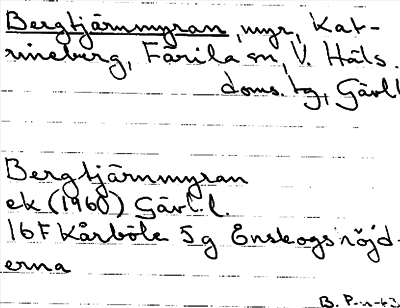 Bergtjärnmyran, myr, Kat-
rineberg, Färila sn, V. Häls.
doms. tg, Gävl.l
Bergtjärnmyran
ek (1960) Gävl.l.
16F Kårböle 5g Enskogshöjd-
erna